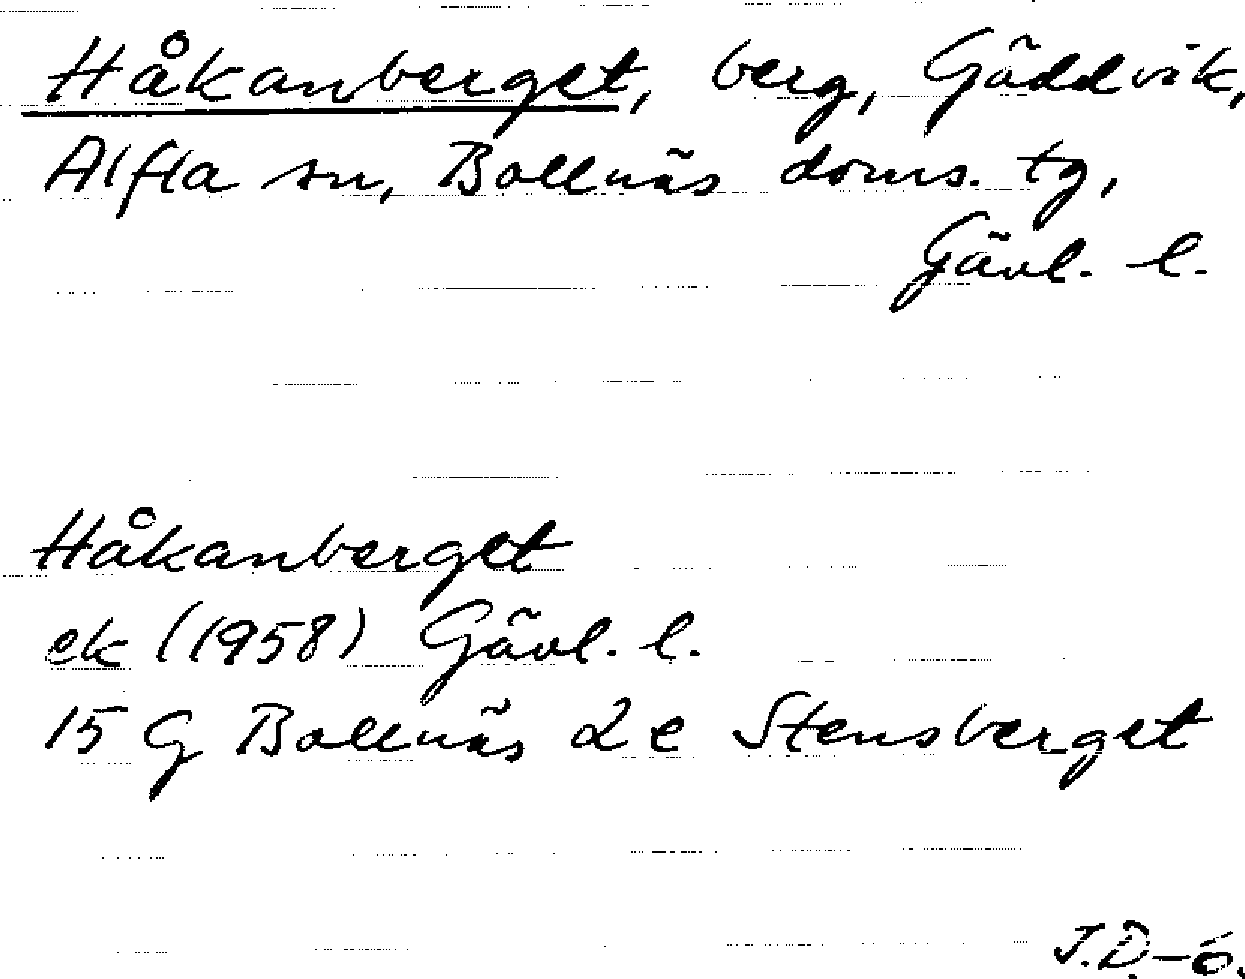 Håkanberget, berg, Gäddvik,
Alfta sn, Bollnäs doms. tg,
Gävl. l.
Håkanberget
ek (1958) Gävl. l.
15 G Bollnäs 2 e Stensberget
J.D-6.